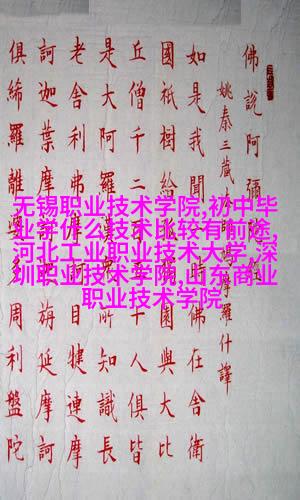 佛說阿彌
姚秦三藏 摩羅什譯
如是我聞 時佛在舍衛
國祇樹給 園與大比
丘僧千二 十人俱皆
是大阿羅漢 所知識長
老舍利弗 目犍連摩
訶迦葉摩 旃延摩訶
俱絺羅離 周利盤陀
无锡职业技术学院,初中毕
业学什么技术比较有前途,
河北工业职业技术大学,深
圳职业技术学院,山东商业
职业技术学院